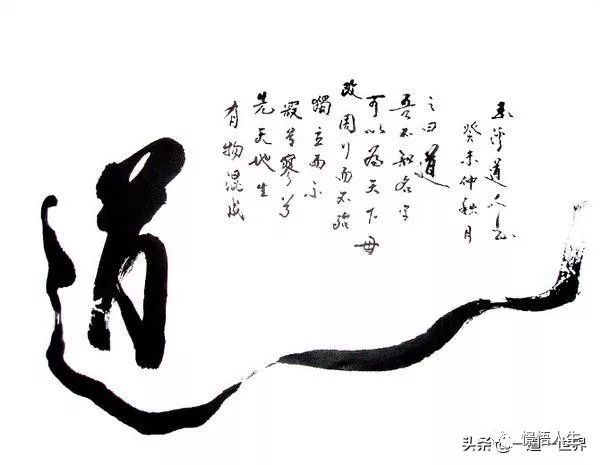 道
有物混成
先天地生
寂兮寥兮
獨立而不
改周行而不殆
可以為天下母
吾不知名字
之曰道
癸未仲秋月
道人
憬悟人生
头条 @一道一世界